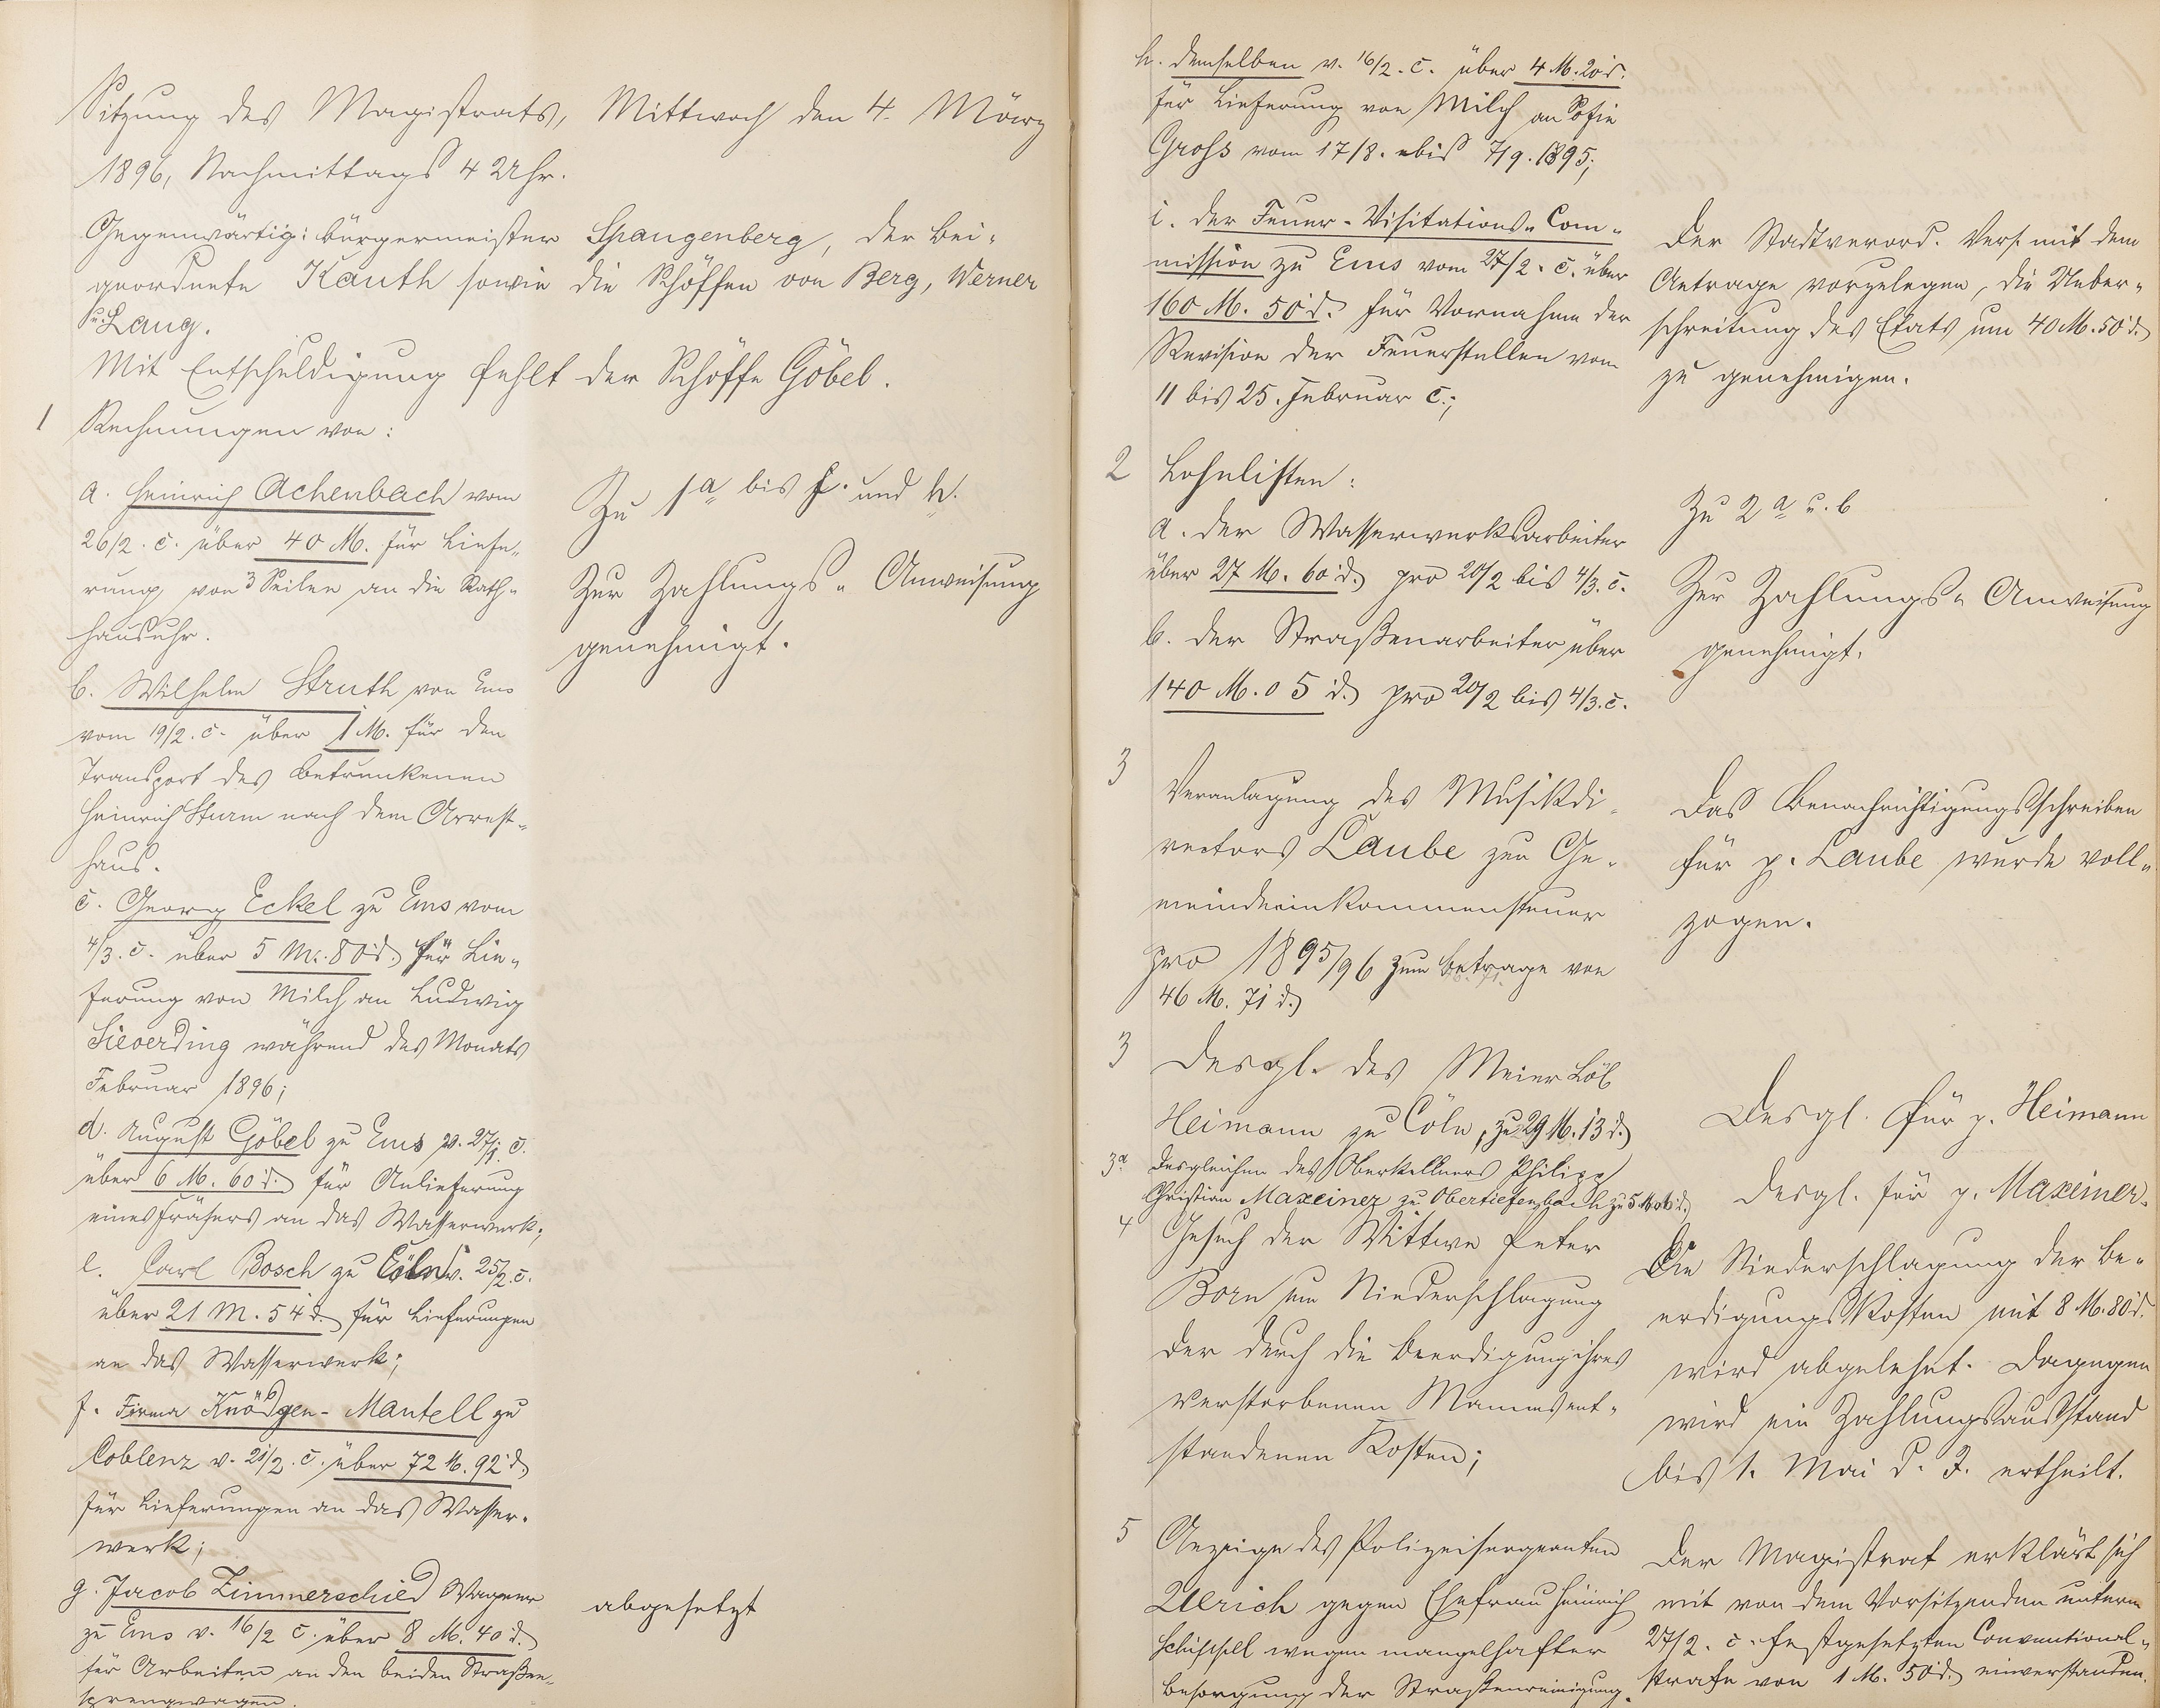 Sitzung des Magistrats, Mittwoch den 4. März
1896, Nachmittags 4 Uhr.
Gegenwärtig: Bürgermeister Spangenberg, der Bei-
geordnete Kauth sowie die Schöffen von Berg, Werner
u. Lang.
Mit Entschuldigung fehlt der Schöffe Göbel.
1 Rechnungen von:
a. Heinrich Achenbach vom
26/2. c. über 40 M. für Liefe-
rung von 3 Seilen an die Rath-
hausuhr.
Zu 1 a bis f. und h.
Zur Zahlungs-Anweisung
genehmigt.
b. Wilhelm Struth von Ems
vom 19/2. c. über 1 M. für den
Transport des betrunkenen
Heinrich Sturm nach dem Arrest-
haus.
c. Georg Eckel zu Ems vom
4/3. c. über 5 M. 80 d. für Lie-
ferung von Milch an Ludwig
Sieverding während des Monats
Februar 1896;
d. August Göbel zu Ems v. 27/1. c.
über 6 M. 60 d. für Anlieferung
eines Fräsers an das Wasserwerk;
e. Carl Bosch zu Cöln v. 25/2. c.
über 21 M. 54 d. für Lieferungen
an das Wasserwerk;
f. Firma Knödgen-Mantell zu
Coblenz v. 21/2. c. über 72 M. 92 d.
für Lieferungen an das Wasser-
werk;
g. Jacob Zimmerschied Wagner
zu Ems v. 16/2 c. über 8 M. 40 d.
für Arbeiten an den beiden Straßen-
sprengwagen.
abgesetzt
h. demselben v. 16/2. c. über 4 M. 20 d.
für Lieferung von Milch an Sofie
Groß vom 17/8. bis 7/9. 1895;
i. der Feuer-Visitations-Com-
mission zu Ems vom 27/2. c. über
160 M. 50 d. für Vornahme der
Revision der Feuerstellen vom
11 bis 25. Februar c.;
Der Stadtverord. Vers. mit dem
Antrage vorzulegen, die Ueber-
schreitung des Etats um 40 M. 50 d.
zu genehmigen.
2 Lohnlisten:
a. der Wasserwerksarbeiter
über 27 M. 60 d. pro 20/2 bis 4/3. c.
b. der Straßenarbeiter über
140 M. 05 d. pro 20/2 bis 4/3. c.
Zu 2 a u. b
Zur Zahlungs-Anweisung
genehmigt.
3 Veranlagung des Musikdi-
rectors Laube zur Ge-
meindeeinkommensteuer
pro 1895/96 zum Betrage von
46 M. 71 d.
Das Benachrichtigungsschreiben
für p. Laube wurde voll-
zogen.
3 Desgl. des Meier Löb
Heimann zu Cöln, zu 29 M. 13 d.
Desgl. für p. Heimann
3a. Desgleichen des Oberkellners Philipp
Christian Maxeiner zu Obertiefenbach zu 5 M.
Desgl. für p. Maxeiner.
4 Gesuch der Wittwe Peter
Born um Niederschlagung
der durch die Beerdigung ihres
verstorbenen Mannes ent-
standenen Kosten;
Die Niederschlagung der Be-
erdigungskosten mit 8 M. 80 d.
wird abgelehnt. Dagegen
wird ein Zahlungsausstand
bis 1. Mai d. J. ertheilt.
5 Anzeige des Polizeisergeanten
Ulrich gegen Ehefrau Heinrich
wegen mangelhafter
Besorgung der Straßenreinigung.
Der Magistrat erklärt sich
mit von dem Vorsitzenden unterm
27/2. c. festgesetzten Conventional-
strafe von 1 M. 50 d. einverstanden.